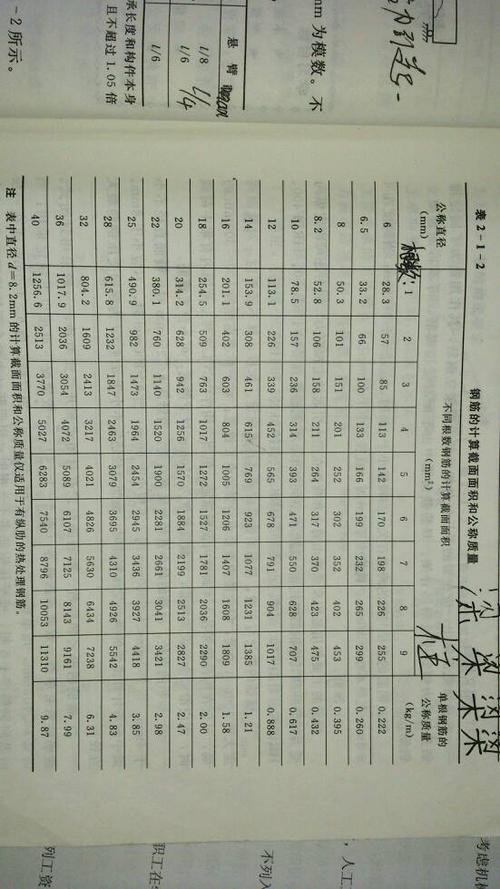 -2 所示。
承长度和构件本身
且不超过 1.05 倍
悬 臂
l/8
l/6
l/6
1/4
mm 为模数。不
表 2-1-2
钢筋的计算截面面积和公称质量
公称直径
(mm)
不同根数钢筋的计算截面面积
(mm²)
单根钢筋的
公称质量
(kg/m)
根数:
1 2 3 4 5 6 7 8 9
6 28.3 57 85 113 142 170 198 226 255 0.222
6.5 33.2 66 100 133 166 199 232 265 299 0.260
8 50.3 101 151 201 252 302 352 402 453 0.395
8.2 52.8 106 158 211 264 317 370 423 475 0.432
10 78.5 157 236 314 393 471 550 628 707 0.617
12 113.1 226 339 452 565 678 791 904 1017 0.888
14 153.9 308 461 615 769 923 1077 1231 1385 1.21
16 201.1 402 603 804 1005 1206 1407 1608 1809 1.58
18 254.5 509 763 1017 1272 1527 1781 2036 2290 2.00
20 314.2 628 942 1256 1570 1884 2199 2513 2827 2.47
22 380.1 760 1140 1520 1900 2281 2661 3041 3421 2.98
25 490.9 982 1473 1964 2454 2945 3436 3927 4418 3.85
28 615.8 1232 1847 2463 3079 3695 4310 4926 5542 4.83
32 804.2 1609 2413 3217 4021 4826 5630 6434 7238 6.31
36 1017.9 2036 3054 4072 5089 6107 7125 8143 9161 7.99
40 1256.6 2513 3770 5027 6283 7540 8796 10053 11310 9.87
注 表中直径 d=8.2mm 的计算截面面积和公称质量仅适用于有纵肋的热处理钢筋。
考虑机
,人工
不列入
职工在
列工资